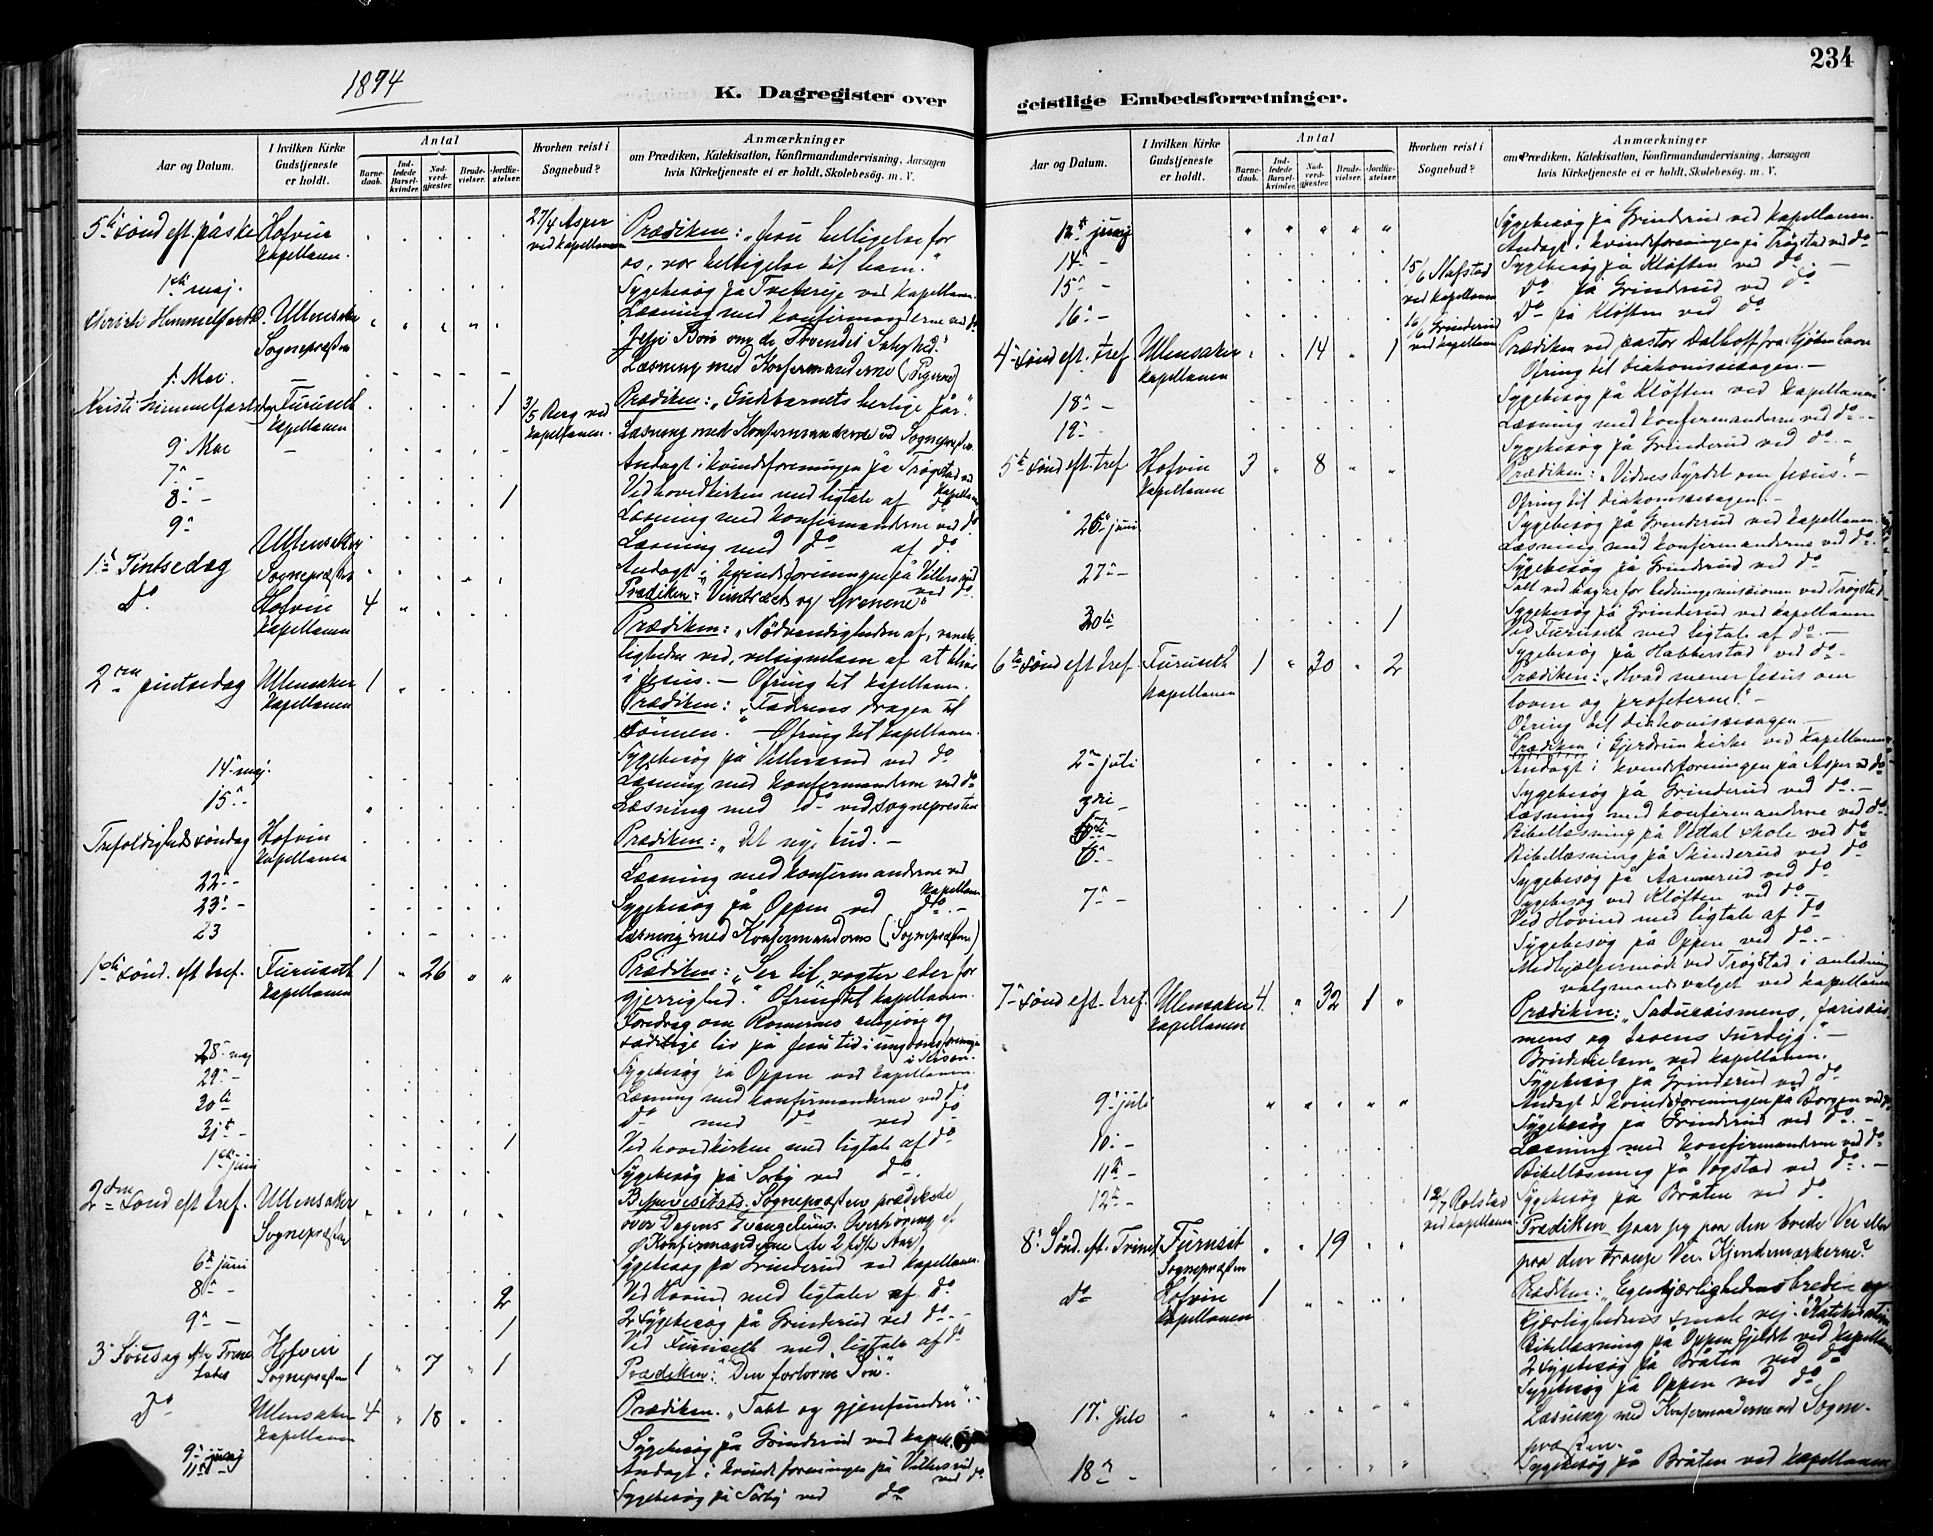 234
1894
K. Dagregister over
geistlige Embedsforretninger.
Aar og Datum.
I hvilken Kirke Gudstjeneste er holdt.
Antal
Barnedaab.
Indledede Barselkvinder.
Nadverdgjester.
Brudevielser.
Jordfæstelser.
Hvorhen reist i Sognebud?
Anmærkninger
om Prædiken, Katekisation, Konfirmandundervisning, Aarsagen
hvis Kirketjeneste ei er holdt. Skolebesøg. m. V.
5te sønd eft. påske Hofvin kapellanen. 27/4 Asper ved kapellanen Prædiken: „Jesu helligelse for
os, vor helligelse til ham."
1ste maj. Sygebesøg på Tvetereje ved kapellanen.
Læsning med konfirmanderne ved do
Christi Himmelfarts Ullensaker Sognepræsten
Læsning med Konfermanderne (Pigerne)
1. Mai.
Kristi himmelfartsdag Furuseth kapellanen 1 3/5 Berg ved kapellanen. Prædiken: „Gudsbarnets herlige kår."
9 Mai Læsning med Konfermanderne ved Sognepræsten
7. - Andagt i kvindeforeningen på Trøgstad ved kapellanen
8. - 1 Ved hovedkirken med ligtale af do
9. Læsning med konfirmanderne ved do
Læsning med do af do.
1ste Pintsedag Ullensaker Sognepræsten Andagt i kvindeforeningen på Villersrud ved do.
Prædiken: Vintræet og Grenene.
Do. Hofvin kapellanen 4 Prædiken: „Nødvendigheden af, vanske-
ligheden ved, velsignelsen af at blive
i Jesus. - Ofring til kapellanen.
2den pintsedag Ullensaker kapellanen 1 Prædiken: „Faderens dragen til
sönnen." - Ofring til kapellanen.
Sygebesøg på Villersrud ved do
14. maj. Læsning med konfirmanderne ved do
15. - Læsning med do ved sognepresten
Trefoldigheds söndag Hofvin kapellanen Prædiken: „Det nye bud. -
22. - Læsning med konfirmanderne ved kapellanen
23. - Sygebesøg på Oppen ved do. -
23 Læsning med Konfermanderne (Sognepræsten)
1ste sønd. eft tref. Furuseth kapellanen 1 26 Prædiken: „Ser til, vogter eder for
gjerrighed." Ofring til kapellanen.
Foredrag om Romernes religiøse og
sædelige liv på Jesu tid i ungdomsforeningen
28. maj Sygebesøg på Oppen ved kapellanen.
29. - Læsning med konfirmanderne ved do.
30te do med do ved do
31te - 1 Ved hovedkirken med ligtale af do
1ste juni Sygebesøg på Sørby ved do.
2den Sønd eft tref. Ullensaker Sognepræsten Bispevisitats. Sognepræsten prædikede
over Dagens Evangelium. Overhøring af
Konfirmanderne (de 2 sidste Aar)
6te juni Sygebesøg på Grinderud ved kapellanen.
8. - 2 Ved Hovind med ligtaler af do.
9. - 2 Sygebesøg på Grinderud ved do. -
1 Ved Furuseth med ligtale af do
3. Søndag efter Trinitatis Hofvin Sognepræsten 1 7 1 Prædiken: „Den fortorne Søn".
Do Ullensaker kapellanen 4 18 Prædiken. „Tabt og gjenfunden".
9. junij Sygebesøg på Grinderud ved kapell.
11te Andagt i kvindeforeningen på Villersrud ved do
Sygebesøg på Sørby ved do
Aar og Datum.
I hvilken Kirke Gudstjeneste er holdt.
Antal
Barnedaab.
Indledede Barselkvinder.
Nadverdgjester.
Brudevielser.
Jordfæstelser.
Hvorhen reist i Sognebud?
Anmærkninger
om Prædiken, Katekisation, Konfirmandundervisning, Aarsagen
hvis Kirketjeneste ei er holdt. Skolebesøg. m. V.
12te junij Sygebesøg på Grinderud ved kapellanen.
Andagt i kvindeforeningen på Trøgstad ved do
14. - Sygebesøg på Kløften ved do. -
15. - 15/6 Nafstad ved kapellanen do på Grinderud ved do
16. - 16/6 Grinderud ved kapellanen do på Kløften ved do
4. sønd eft. tref. Ullensaker kapellanen 14 1 Prædiken ved pastor Dalhoff fra Kjøbenhavn
Ofring til diakonissesagen. -
18. - Sygebesøg på Kløften ved kapellanen
19. - Læsning med konfirmanderne ved do. -
Sygebesøg på Grinderud ved do. -
5te sønd eft. tref. Hofvin kapellanen 3 8 Prædiken: „Vidnesbyrdet om Jesus." -
Ofring til diakonissesagen. -
Sygebesøg på Grinderud ved kapellanen.
26. juni Læsning med konfirmanderne ved do.
27. - Sygebesøg på Grinderud ved do
30te Sygebesøg på Grinderud ved kapellanen
1 Ved Furuseth med ligtale af do. -
Sygebesøg på Habberstad ved do -
6te sønd eft tref. Furuseth kapellanen 1 30 2 Prædiken: „Hvad mener Jesus om
loven og profeterne". -
Ofring til diakonissesagen. -
Prædiken i Gjerdrum kirke ved kapellanen
2. juli Andagt i kvindeforeningen på Asper ved do
3die - Sygebesøg på Grinderud ved do. -
Læsning med konfirmanderne ved do.
Bibellæsning på Vittal skole ved do
6. - Bibellæsning på Skinderud ved do
Sygebesøg på Aannerud ved do
7. - Sygebesøg ved Kløften ved do -
1 Ved Hovind med ligtale af do
Sygebesøg på Oppen ved do. -
Medhjælpermøde ved Trøgstad i anledning
valgmandsvalget ved kapellanen
7. sønd eft. tref. Ullensaker kapellanen 4 32 1 Prædiken: „Saducæismens, farisæis-
mens og troens surdejg". -
Brudevielsen ved kapellanen.
Sygebesøg på Grinderud ved do
9. juli Andagt i kvindeforeningen på Borgen ved do
10. - Sygebesøg på Grinderud ved do. -
Læsning med konfirmanderne ved do
11te - Bibellæsning på Vogstad ved do. -
12te - 12/7 Rolstad ved kapellanen Sygebesøg på Bråten ved do
8. Sønd. eft. Trinit Furuset Sognepræsten 19 Prædiken Gaar jeg paa den brede Vei eller
paa den trange Vei. Kjendemærkerne?
do Hofvin kapellanen 1 Prædiken: „Egenkjærlighedens brede og
kjærlighedens smale vej. Katekisation
Bibellæsning på Oppen Gjeldet ved kapellanen
2 Sygebesøg på Bråten ved do
Sygebesøg på Oppen ved do
17. Julo Læsning med Konfermanderne ved Sogne-
præsten.
18. - Sygebesøg på Bråten ved kapellanen